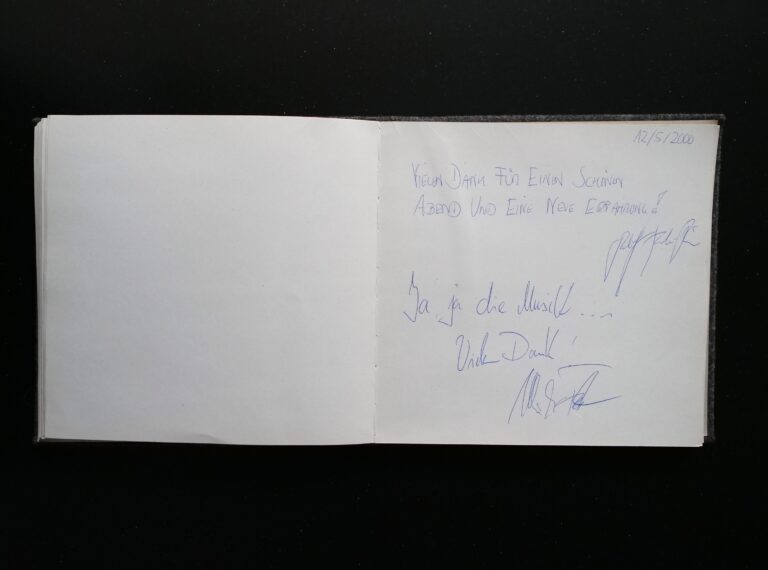 12/5/2000
VIELEN DANK FÜR EINEN SCHÖNEN
ABEND UND EINE NEUE ERFAHRUNG!
Ja, ja die Musik ....
Vielen Dank!